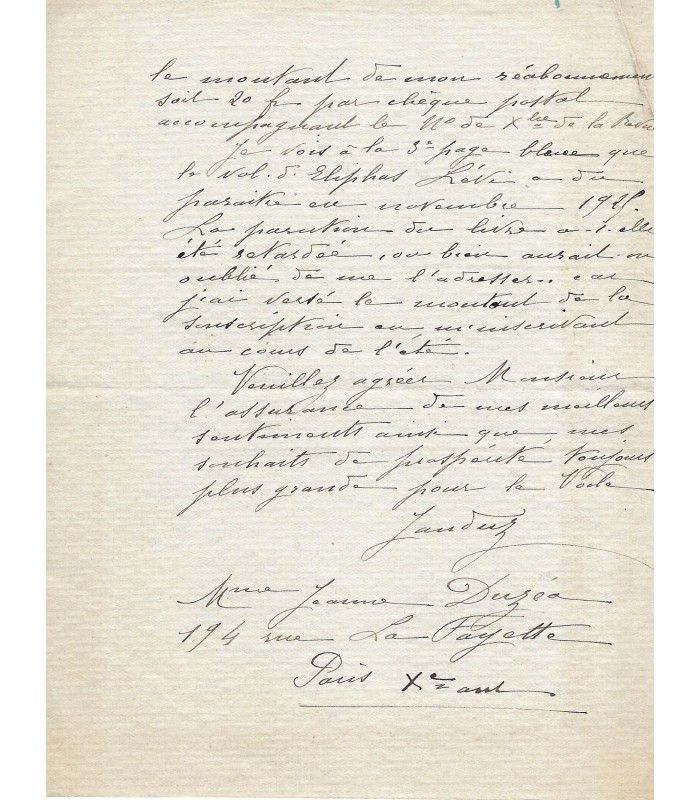 le montant de mon réabonnement
soit 20 fr par chèque postal
accompagnant le No de Xbre de la Revue
Je vois à la 3e page bleue que
le vol. d'Eliphas Lévi a du
paraitre en novembre 1925.
La parution du livre a-t-elle
été retardée, ou bien aurait-on
oublié de me l'adresser, car
j'ai versé le montant de la
souscription en m'inscrivant
au cours de l'été.
Veuillez agréer Monsieur
l'assurance de mes meilleurs
sentiments ainsi que mes
souhaits de prospérité toujours
plus grande pour le Voile
Janduz
Mme Jeanne Duzéa
194 rue La Fayette
Paris Xe arrt